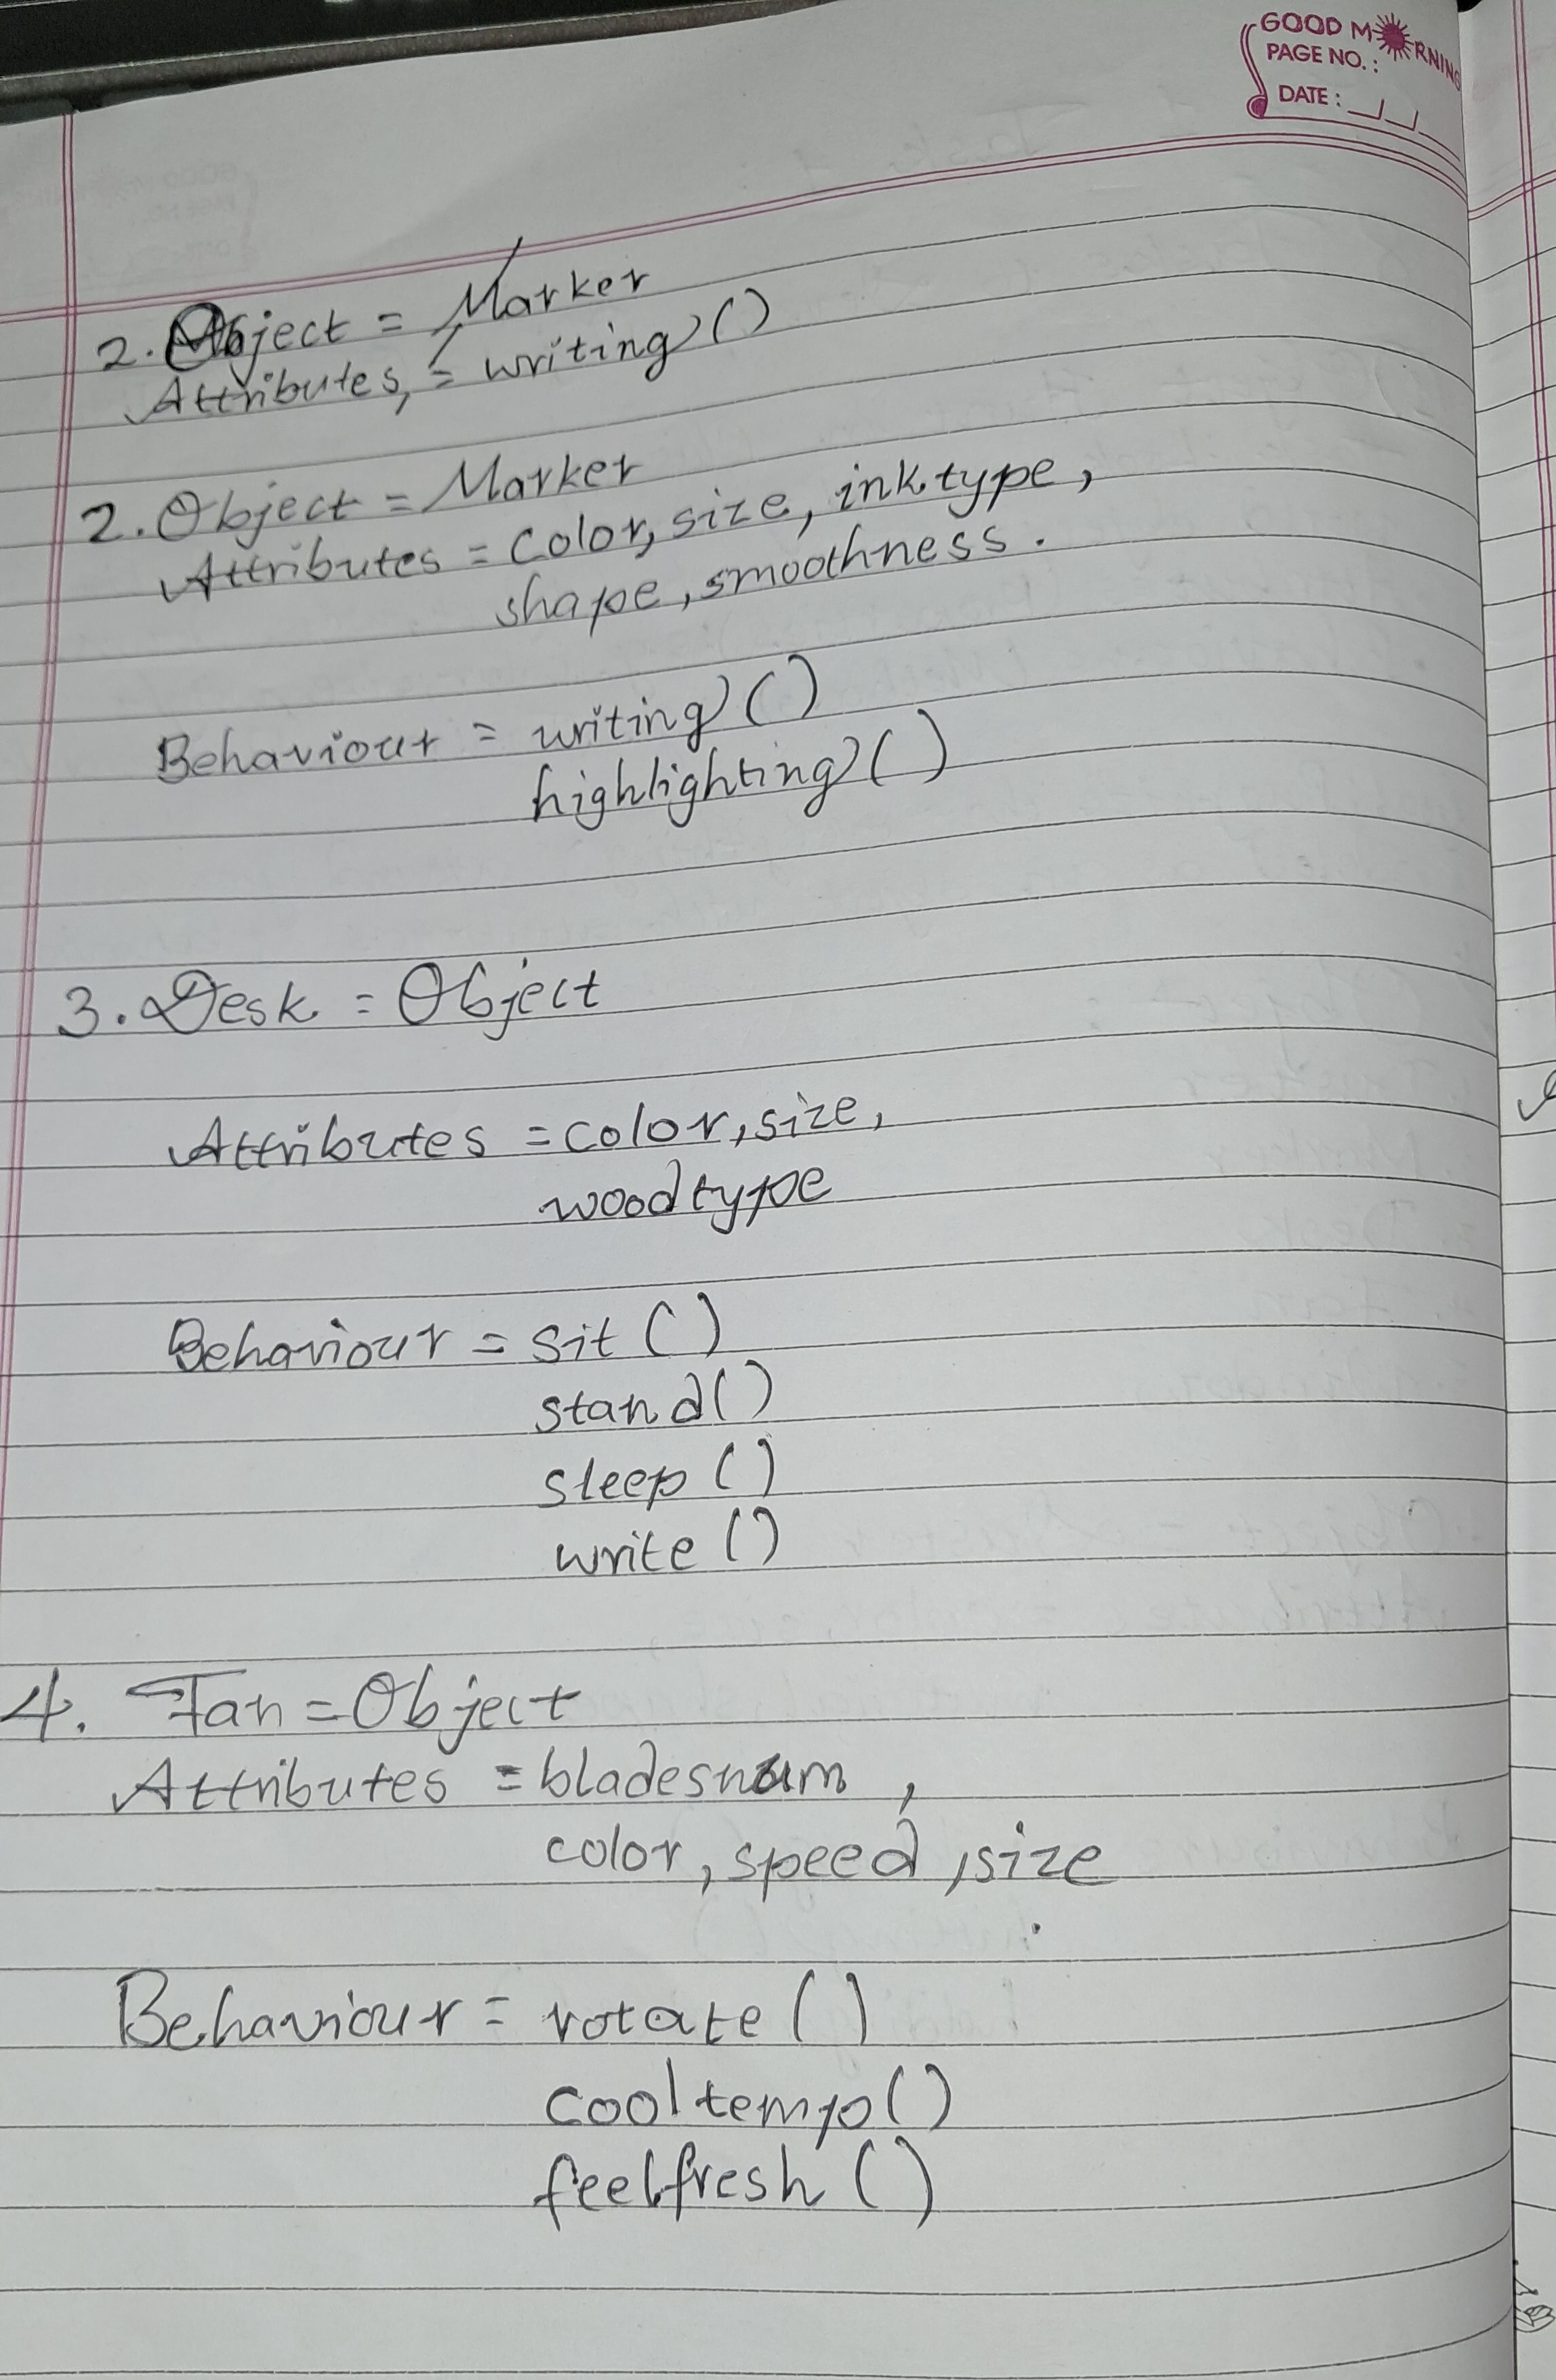 GOOD MORNING
PAGE NO. :
DATE :
2. Object = Marker
Attributes, = writing()
2. Object = Marker
Attributes = Color, size, ink type,
shape, smoothness.
Behaviour = writing()
highlighting()
3. Desk = Object
Attributes = color, size,
woodtype
Behaviour = sit()
stand()
sleep()
write()
4. Fan = Object
Attributes = bladesnum,
color, speed, size
Behaviour = rotate()
cooltemp()
feelfresh()